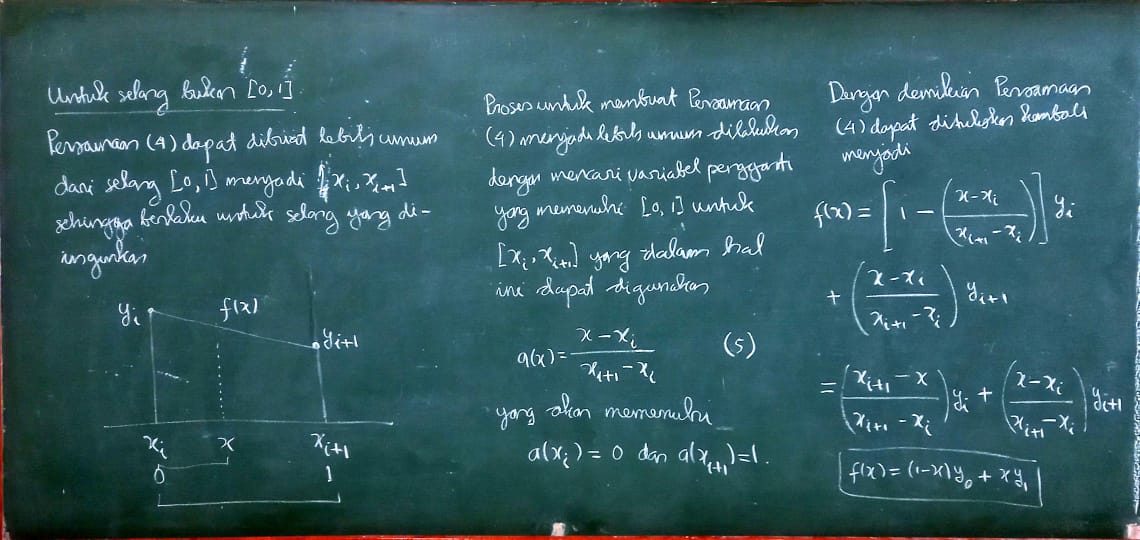 Untuk selang bukan [0,1].
Persamaan (4) dapat dibuat lebih umum
dari selang [0,1] menjadi [x_i, x_{i+1}]
sehingga berlaku untuk selang yang di-
inginkan
y_i f(x) y_{i+1}
x_i x x_{i+1}
0 1
Proses untuk membuat Persamaan
(4) menjadi lebih umum dilakukan
dengan mencari variabel pengganti
yang memenuhi [0,1] untuk
[x_i, x_{i+1}] yang dalam hal
ini dapat digunakan
a(x) = \frac{x - x_i}{x_{i+1} - x_i} (5)
yang akan memenuhi
a(x_i) = 0 dan a(x_{i+1}) = 1.
Dengan demikian Persamaan
(4) dapat dituliskan kembali
menjadi
f(x) = [1 - (\frac{x - x_i}{x_{i+1} - x_i})] y_i
+ (\frac{x - x_i}{x_{i+1} - x_i}) y_{i+1}
= (\frac{x_{i+1} - x}{x_{i+1} - x_i}) y_i + (\frac{x - x_i}{x_{i+1} - x_i}) y_{i+1}
f(x) = (1-x) y_0 + x y_1